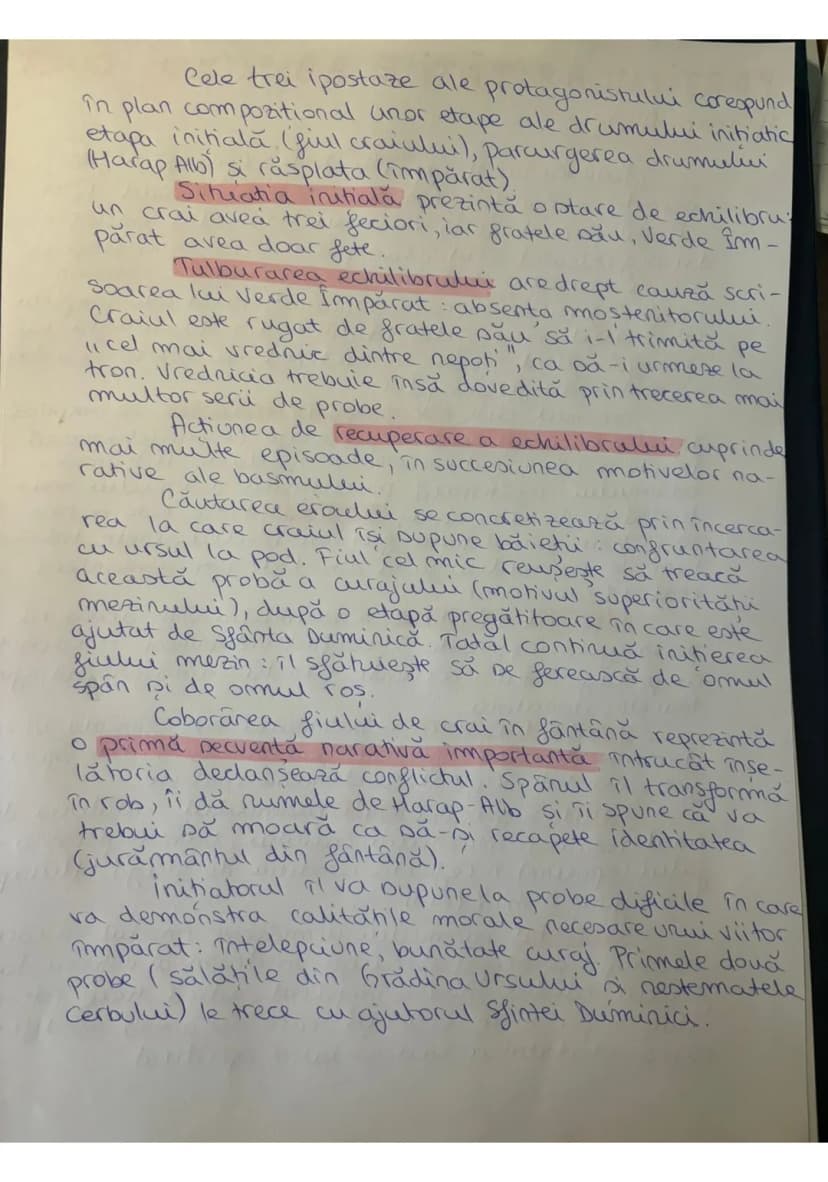 Cele trei ipostaze ale protagonistului corespund
în plan compozițional unor etape ale drumului inițiatic
etapa inițială (fiul craiului), parcurgerea drumului
(Harap Alb) și răsplata (împărat).
Situația inițială prezintă o stare de echilibru:
un crai avea trei feciori, iar fratele său, Verde Îm-
părat avea doar fete.
Tulburarea echilibrului are drept cauză scri-
soarea lui Verde Împărat: absența moștenitorului.
Craiul este rugat de fratele său să i-l trimită pe
„cel mai vrednic dintre nepoți", ca să-i urmeze la
tron. Vrednicia trebuie însă dovedită prin trecerea mai
multor serii de probe.
Acțiunea de recuperare a echilibrului cuprinde
mai multe episoade, în succesiunea motivelor na-
rative ale basmului.
Căutarea eroului se concretizează prin încerca-
rea la care craiul își supune băieții: confruntarea
cu ursul la pod. Fiul cel mic reușește să treacă
această probă a curajului (motivul superiorității
mezinului), după o etapă pregătitoare în care este
ajutat de Sfânta Duminică. Tatăl continuă inițierea
fiului mezin: îl sfătuiește să se ferească de omul
spân și de omul roș.
Coborârea fiului de crai în fântână reprezintă
o primă secvență narativă importantă întrucât înșe-
lătoria declanșează conflictul. Spânul îl transformă
în rob, îi dă numele de Harap-Alb și îi spune că va
trebui să moară ca să-și recapete identitatea
(jurământul din fântână).
Inițiatorul îl va supune la probe dificile în care
va demonstra calitățile morale necesare unui viitor
împărat: înțelepciune, bunătate curaj. Primele două
probe (sălățile din Grădina Ursului și nestematele
Cerbului) le trece cu ajutorul Sfintei Duminici.